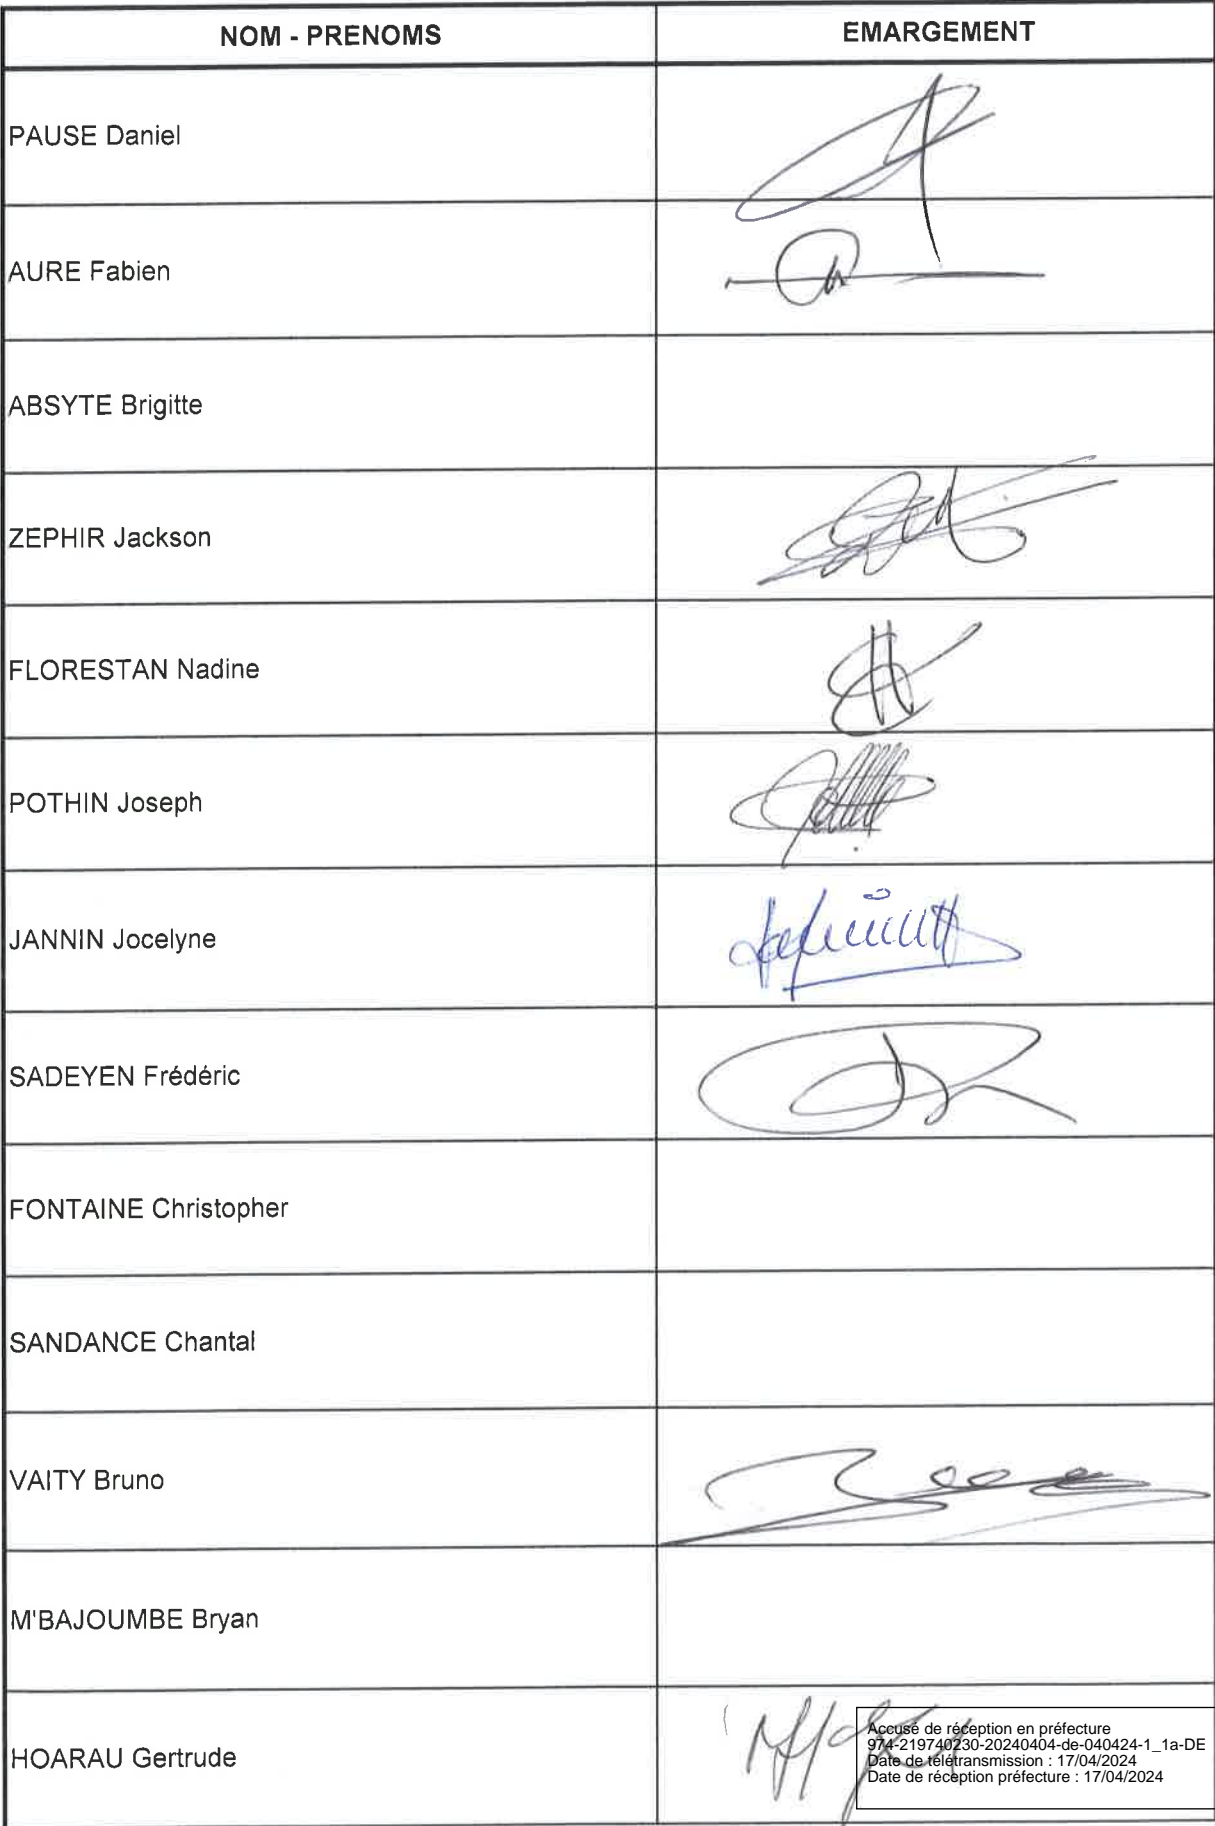 NOM - PRENOMS
EMARGEMENT
PAUSE Daniel
AURE Fabien
ABSYTE Brigitte
ZEPHIR Jackson
FLORESTAN Nadine
POTHIN Joseph
JANNIN Jocelyne
SADEYEN Frédéric
FONTAINE Christopher
SANDANCE Chantal
VAITY Bruno
M'BAJOUMBE Bryan
HOARAU Gertrude
Accusé de réception en préfecture
974-219740230-20240404-de-040424-1_1a-DE
Date de télétransmission : 17/04/2024
Date de réception préfecture : 17/04/2024